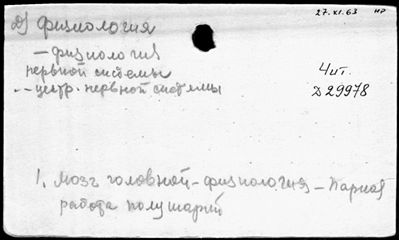 27.XI.63 НР
2) физиология
— физиология
нервной системы
Чит.
-- центр. нервной системы
Д 29978
1. Мозг головной - физиология - Парная
работа полушарий